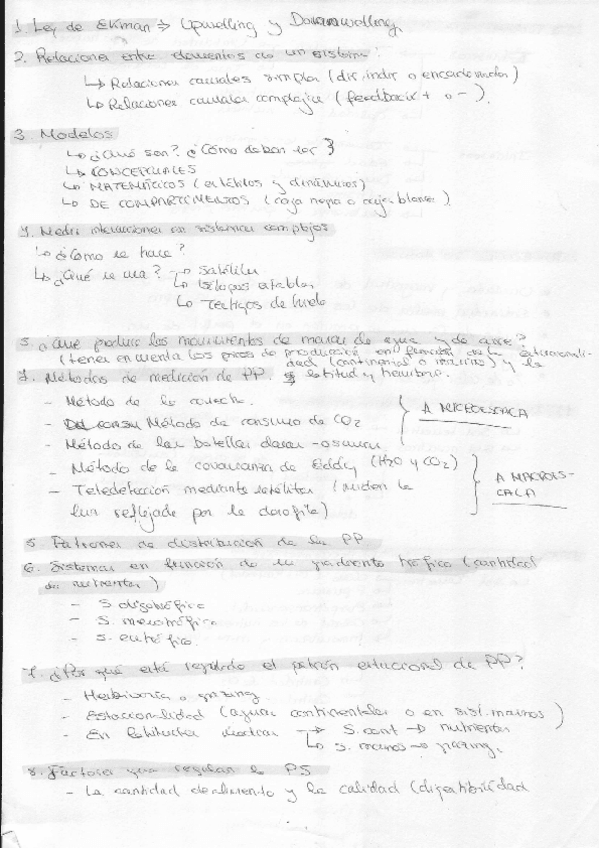 1. Ley de Ekman ⇒ Upwelling y Downwelling
2. Relaciones entre elementos de un sistema:
↳ Relaciones causales simples (dir, indir o encadenadas)
↳ Relaciones causales complejas (feedback + o -)
3. Modelos
↳ ¿Qué son? ¿Cómo deben ser?
↳ CONCEPTUALES
↳ MATEMÁTICOS (estáticos y dinámicos)
↳ DE COMPARTIMENTOS (caja negra o caja blanca)
4. Medir interacciones en sistemas complejos
↳ ¿Cómo se hace?
↳ ¿Qué se usa? → Satélites
↳ Isótopos estables
↳ Testigos de hielo
5. ¿Qué produce los movimientos de masas de agua y de aire?
(tener en cuenta los picos de producción en función de la estacionali-
dad (continental o marino) y la
7. Métodos de medición de PP. latitud y hemisferio.
- Método de la cosecha
- Método de consumo de CO2
- Método de las botellas claras-oscuras
A MICROESCALA
- Método de la covarianza de Eddy (H2O y CO2)
- Teledetección mediante satélites (miden la
luz reflejada por la clorofila)
A MACROES-
CALA
5. Patrones de distribución de la PP
6. Sistemas en función de su gradiente trófico (cantidad
de nutrientes)
- S. oligotrófico
- S. mesotrófico
- S. eutrófico.
7. ¿Por qué está regulado el patrón estacional de PP?
- Herbivoría o grazing
- Estacionalidad (aguas continentales o en sist. marinos)
- En latitudes → S. cont → nutrientes
↳ S. marinos → grazing.
8. Factores que regulan la PS
- La cantidad de alimento y la calidad (digestibilidad